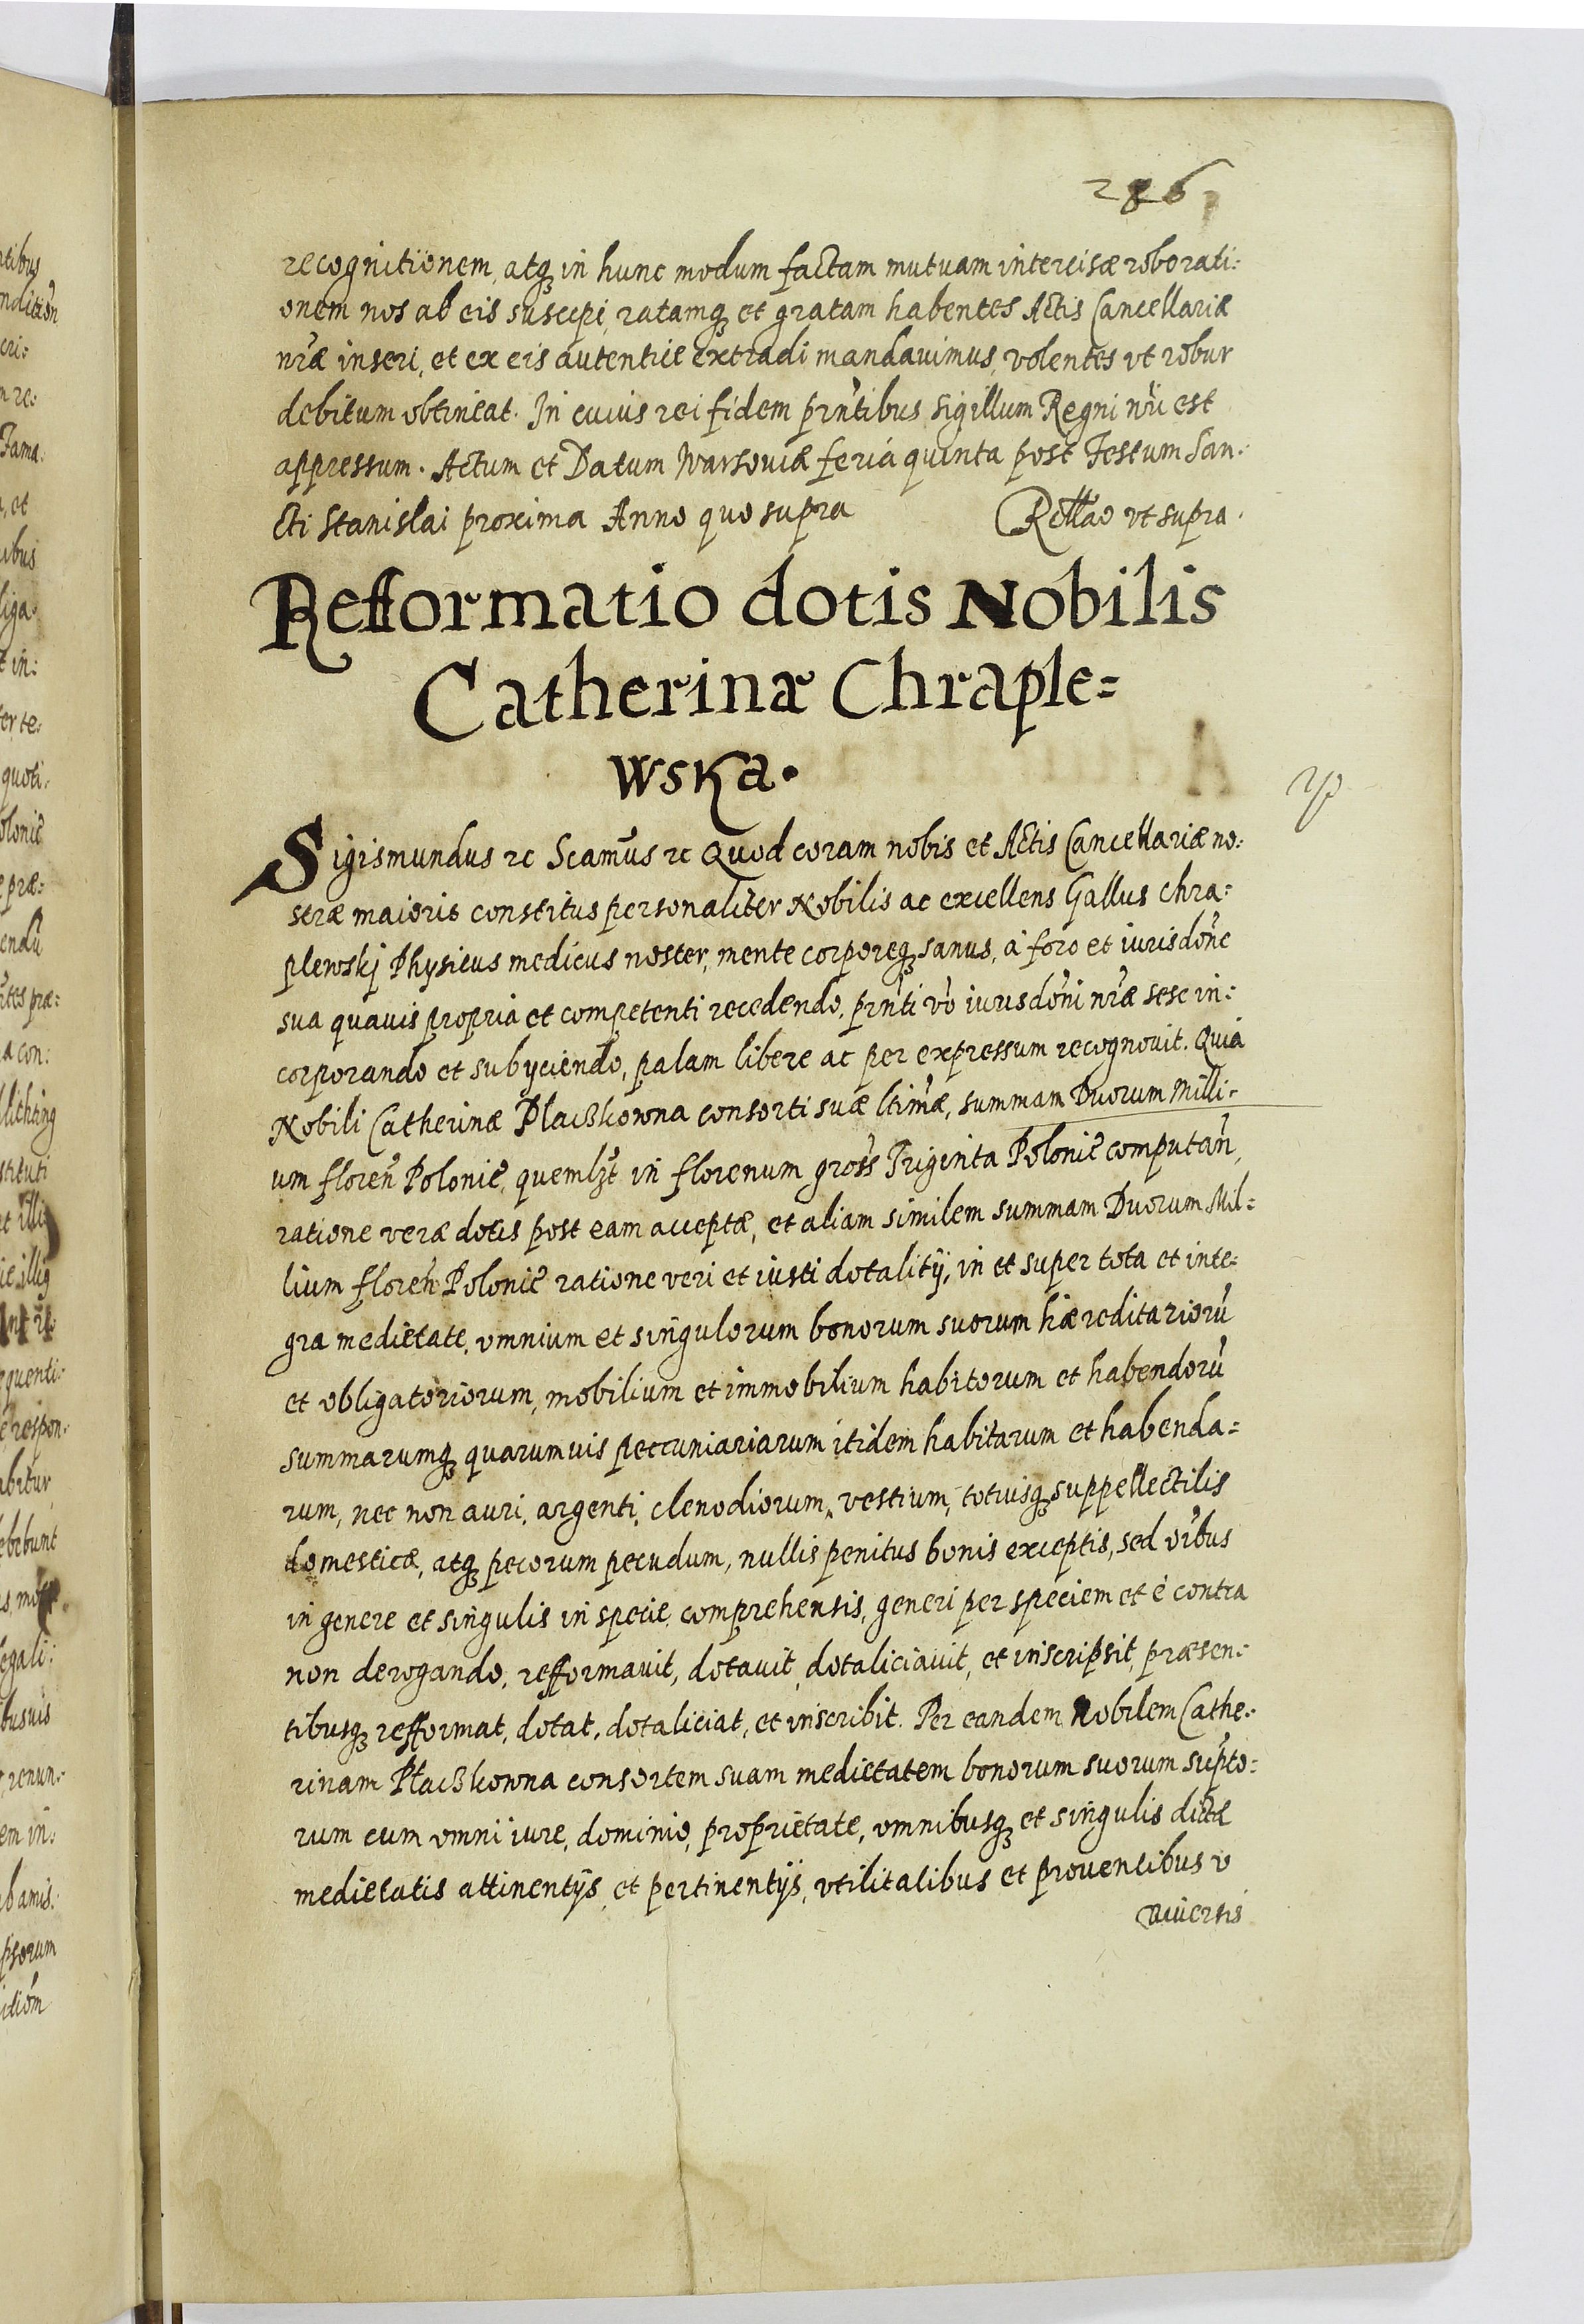 286
recognitionem, atq₃ in hunc modum factam mutuam intercisæ roborati:
onem nos ab eis suscepi, ratamq₃ et gratam habentes Actis Cancellariæ
nr̃æ inseri, et ex eis autentice extradi mandauimus, volentes vt robur
debitum obtineat. In cuius rei fidem prñtibus sigillum Regni nr̃i est
appressum. Actum et Datum Warsouiæ feria quinta post Festum San:
cti Stanislai proxima Anno quo supra Rellao vt supra.
Refformatio dotis Nobilis
Catherinæ Chraple=
wska.
Sigismundus ꝛc Scamus ꝛc Quod coram nobis et Actis Cancellariæ no:
stræ maioris constitus personaliter Nobilis ac excellens Gallus Chra=
plewskj Physicus medicus noster, mente corporeq₃ sanus, à foro et iurisdonc
sua quauis propria et competenti recedendo, prñti vo iurisdoni nr̃æ sese in:
corporando et subyciendo, palam libere ac per expressum recognouit. Quia
Nobili Catherinæ Płaczkowna consorti suæ ltimæ, summam Duorum Milli:
um floreñ Polonie, quemlzt in florenum gross Triginta Polonic computañ,
ratione veræ dotis post eam acceptæ, et aliam similem summam Duorum Mil=
lium floreñ Polonic ratione veri et iusti dotalitÿ, in et super tota et inte:
gra medietate, omnium et singulorum bonorum suorum hæreditariorũ
et obligatoriorum, mobilium et immobilium habitorum et habendorũ
summarumq₃ quarumuis peccuniariarum itidem habitarum et habenda=
rum, nec non auri, argenti, clenodiorum, vestium, totiusq₃ suppellectilis
domesticæ, atq₃ pecorum pecudum, nullis penitus bonis exceptis, sed oibus
in genere et singulis in specie comprehensis, generi per speciem et è contra
non derogando, refformauit, dotauit, dotaliciauit, et inscripsit, præsen:
tibusq₃ refformat, dotat, dotaliciat, et inscribit. Per eandem Nobilem Cathe:
rinam Płaczkowna consortem suam medietatem bonorum suorum supto:
rum cum omni iure, dominio, proprietate, omnibusq₃ et singulis dictæ
medietatis attinentÿs, et pertinentÿs, vtilitatibus et prouentibus v
niuersis